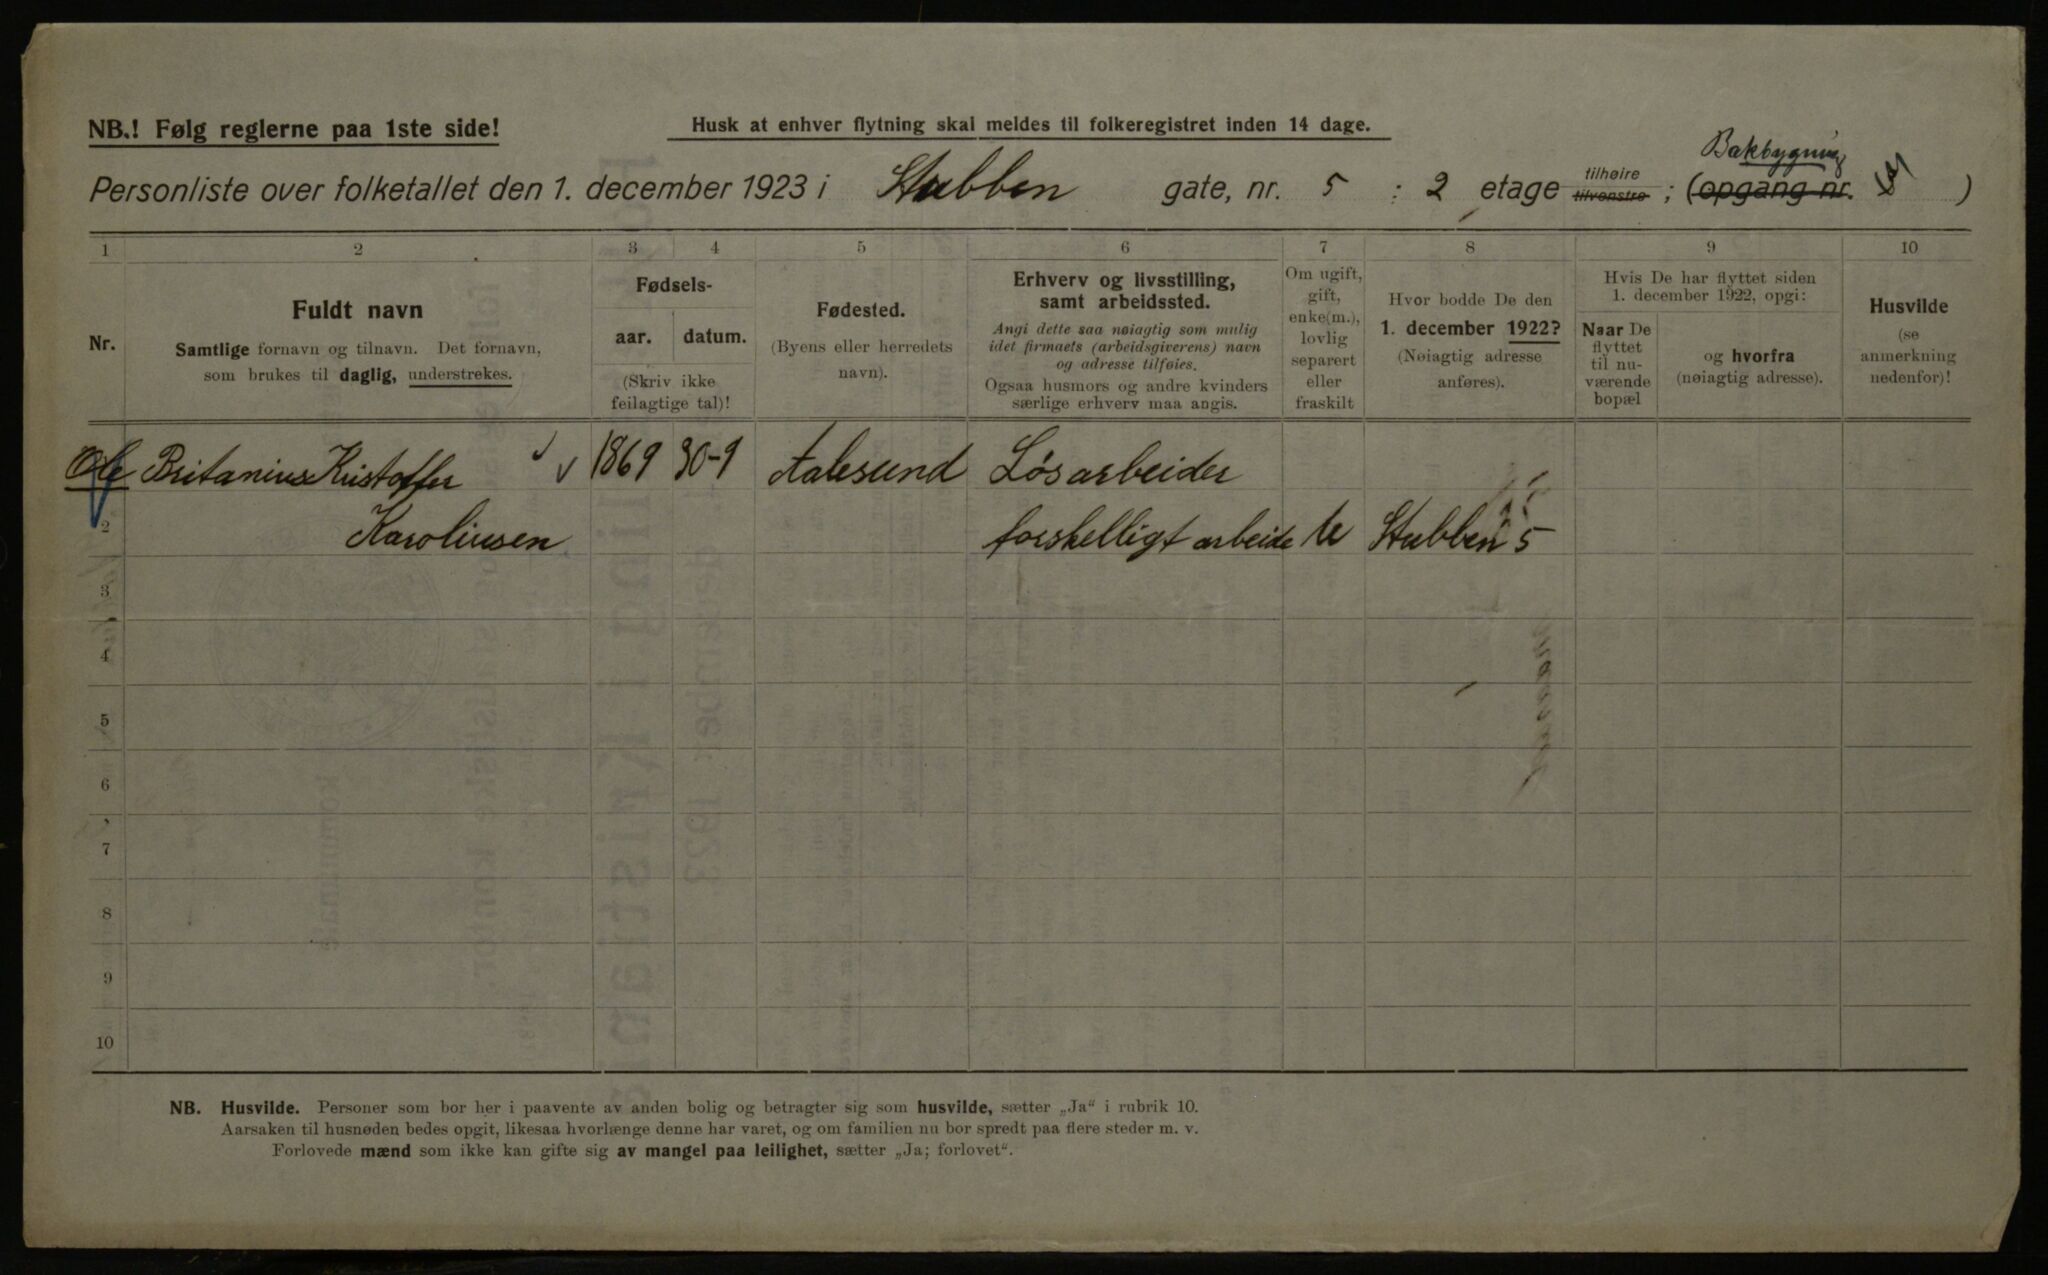 NB.! Følg reglerne paa 1ste side!
Husk at enhver flytning skal meldes til folkeregistret inden 14 dage.
Bakbygning
Personliste over folketallet den 1. december 1923 i Stubben gate, nr. 5 : 2 etage tilhøire tilvenstre ; (opgang nr. )
1 2 3 4 5 6 7 8 9 10
Nr.
Fuldt navn
Samtlige fornavn og tilnavn. Det fornavn,
som brukes til daglig, understrekes.
Fødsels-
aar. datum.
(Skriv ikke
feilagtige tal)!
Fødested.
(Byens eller herredets
navn).
Erhverv og livsstilling,
samt arbeidssted.
Angi dette saa nøiagtig som mulig
idet firmaets (arbeidsgiverens) navn
og adresse tilføies.
Ogsaa husmors og andre kvinders
særlige erhverv maa angis.
Om ugift,
gift,
enke(m.),
lovlig
separert
eller
fraskilt
Hvor bodde De den
1. december 1922?
(Nøiagtig adresse
anføres).
Hvis De har flyttet siden
1. december 1922, opgi:
Naar De
flyttet
til nu-
værende
bopæl
og hvorfra
(nøiagtig adresse).
Husvilde
(se
anmerkning
nedenfor)!
Ole Britanius Kristoffer 1869 30-9 Aalesund Løsarbeider
2 Karoliusen forskelligt arbeide U Stubben 5
3
4
5
6
7
8
9
10
NB. Husvilde. Personer som bor her i paavente av anden bolig og betragter sig som husvilde, sætter „Ja“ i rubrik 10.
Aarsaken til husnøden bedes opgit, likesaa hvorlænge denne har varet, og om familien nu bor spredt paa flere steder m. v.
Forlovede mænd som ikke kan gifte sig av mangel paa leilighet, sætter „Ja; forlovet“.